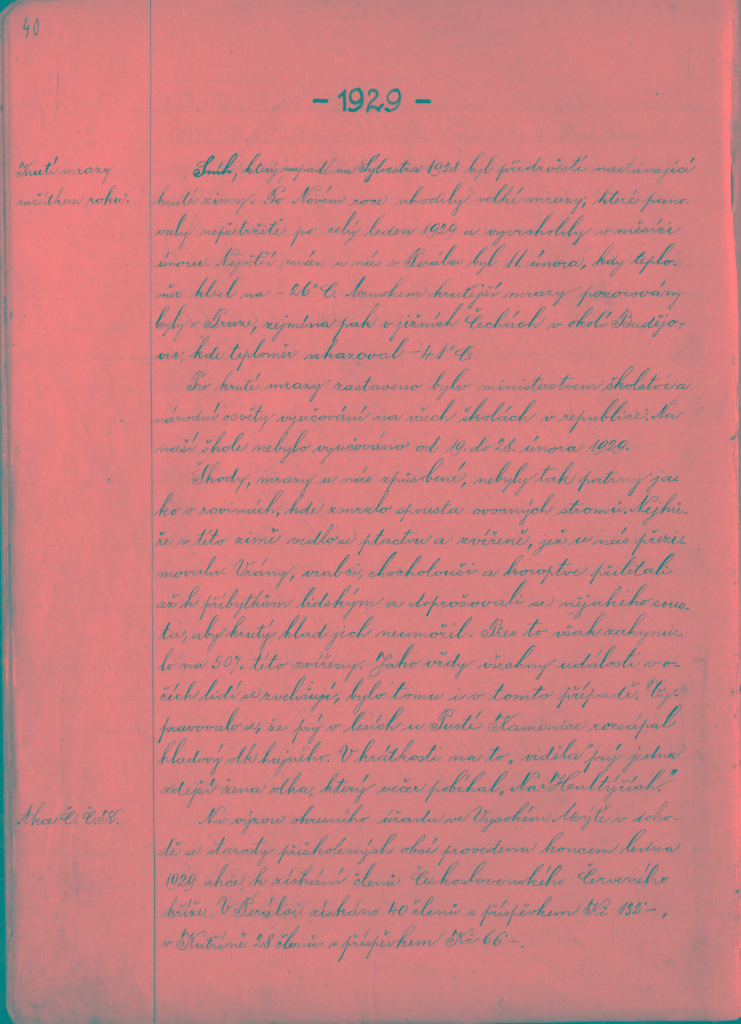 40
- 1929 -
Krutí mrazy
začátkem roku.
Sníh, který napadl na Sylvestra 1928 byl předzvěstí nastávající
kruté zimy. Po Novém roce uhodily velké mrazy, které pano-
valy nepřetržitě po celý leden 1929 a vyvrcholily v měsíci
únoru. Největší mráz u nás v Perálci byl 11. února, kdy teplo-
měr klesl na -26°C. Mnohem krutější mrazy pozorovány
byly v Praze, zejména pak v jižních Čechách v okolí Budějo-
vic, kde teploměr ukazoval -41°C.
Pro kruté mrazy zastaveno bylo ministerstvem školství a
národní osvěty vyučování na všech školách v republice. Na
naší škole nebylo vyučováno od 19. do 28. února 1929.
Škody, mrazy u nás způsobené, nebyly tak patrny ja-
ko v rovinách, kde zmrzlo spousta ovocných stromů. Nejhů-
ře v této zimě vedlo se ptactvu a zvířeně, jež u nás přezi-
movala. Vrány, vrabci, chocholouši a koroptve přilétali
až k příbytkům lidským a doprošovali se nějakého sous-
ta, aby krutý hlad jich neumořil. Přes to však zahynu-
lo na 50% této zvířeny. Jako vždy všechny události v o-
čích lidí se zveličují, bylo tomu i v tomto případě. Vy-
pravovalo se, že prý v lesích u Pusté Kamenice rozsápal
hladový vlk hajného. V krátkosti na to „viděla" prý jedna
zdejší žena vlka, který včer pobíhal „Na Hultýších."
Akce Č. Č. K.
Na výzvu okresního úřadu ve Vysokém Mýtě v doho-
dě se starosty přiškolených obcí provedena koncem ledna
1929 akce k získání členů Československého Červeného
kříže. V Perálci získáno 40 členů s příspěvkem Kč 132-,
v Kutříně 28 členů s příspěvkem Kč 66-.